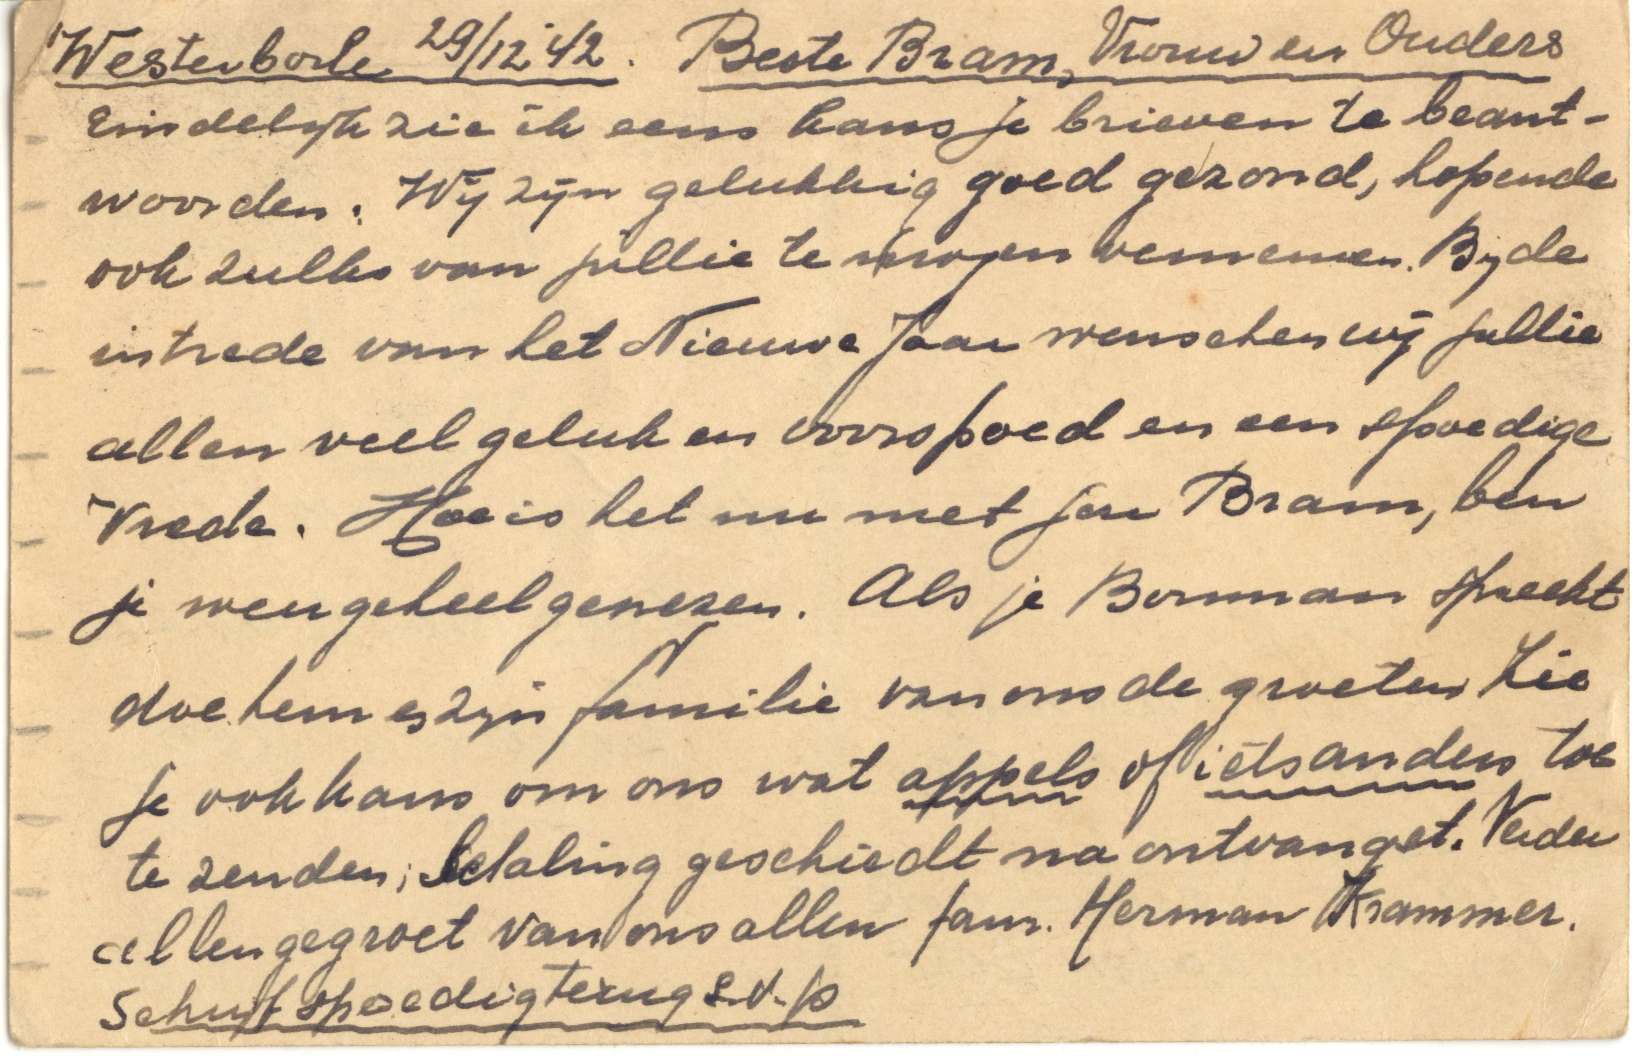 Westerbork 29/12 '42. Beste Bram, Vrouw en Ouders
Eindelijk zie ik eens kans je brieven te beant-
woorden. Wij zijn gelukkig goed gezond, hopende
ook zulks van jullie te mogen vernemen. Bij de
intrede van het Nieuwe Jaar wenschen wij jullie
allen veel geluk en voorspoed en een spoedige
Vrede. Hoe is het nu met jou Bram, ben
je weer geheel genezen. Als je Bornman spreekt
doe hem en zijn familie van ons de groeten Zie
je ook kans om ons wat appels of iets anders toe
te zenden, Betaling geschiedt na ontvangst. Verder
allen gegroet van ons allen fam. Herman Krammer.
Schrijf spoedig terug s.v.p